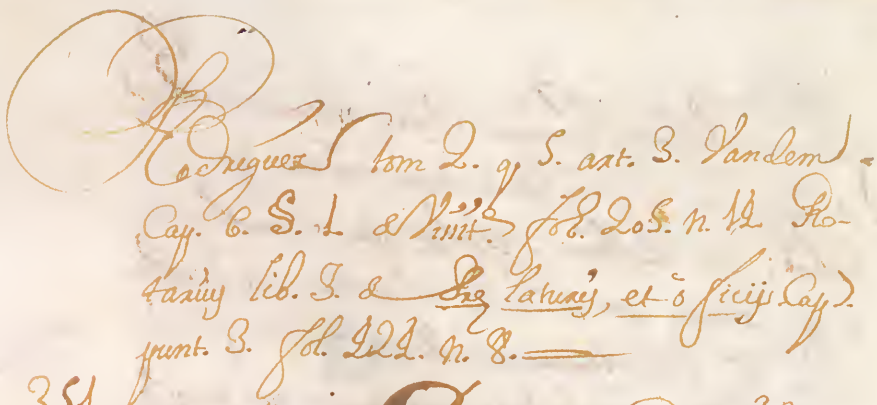 Rodriguez tom 2. q 5. art. 3. Tandem.
Cap. 6. S. 1. de Visit.e fol. 205. n. 12. Ro-
tarius lib. 3. de Præ laturis, et o ficijs Cap).
punt. 3. fol. 121. n. 8.
351